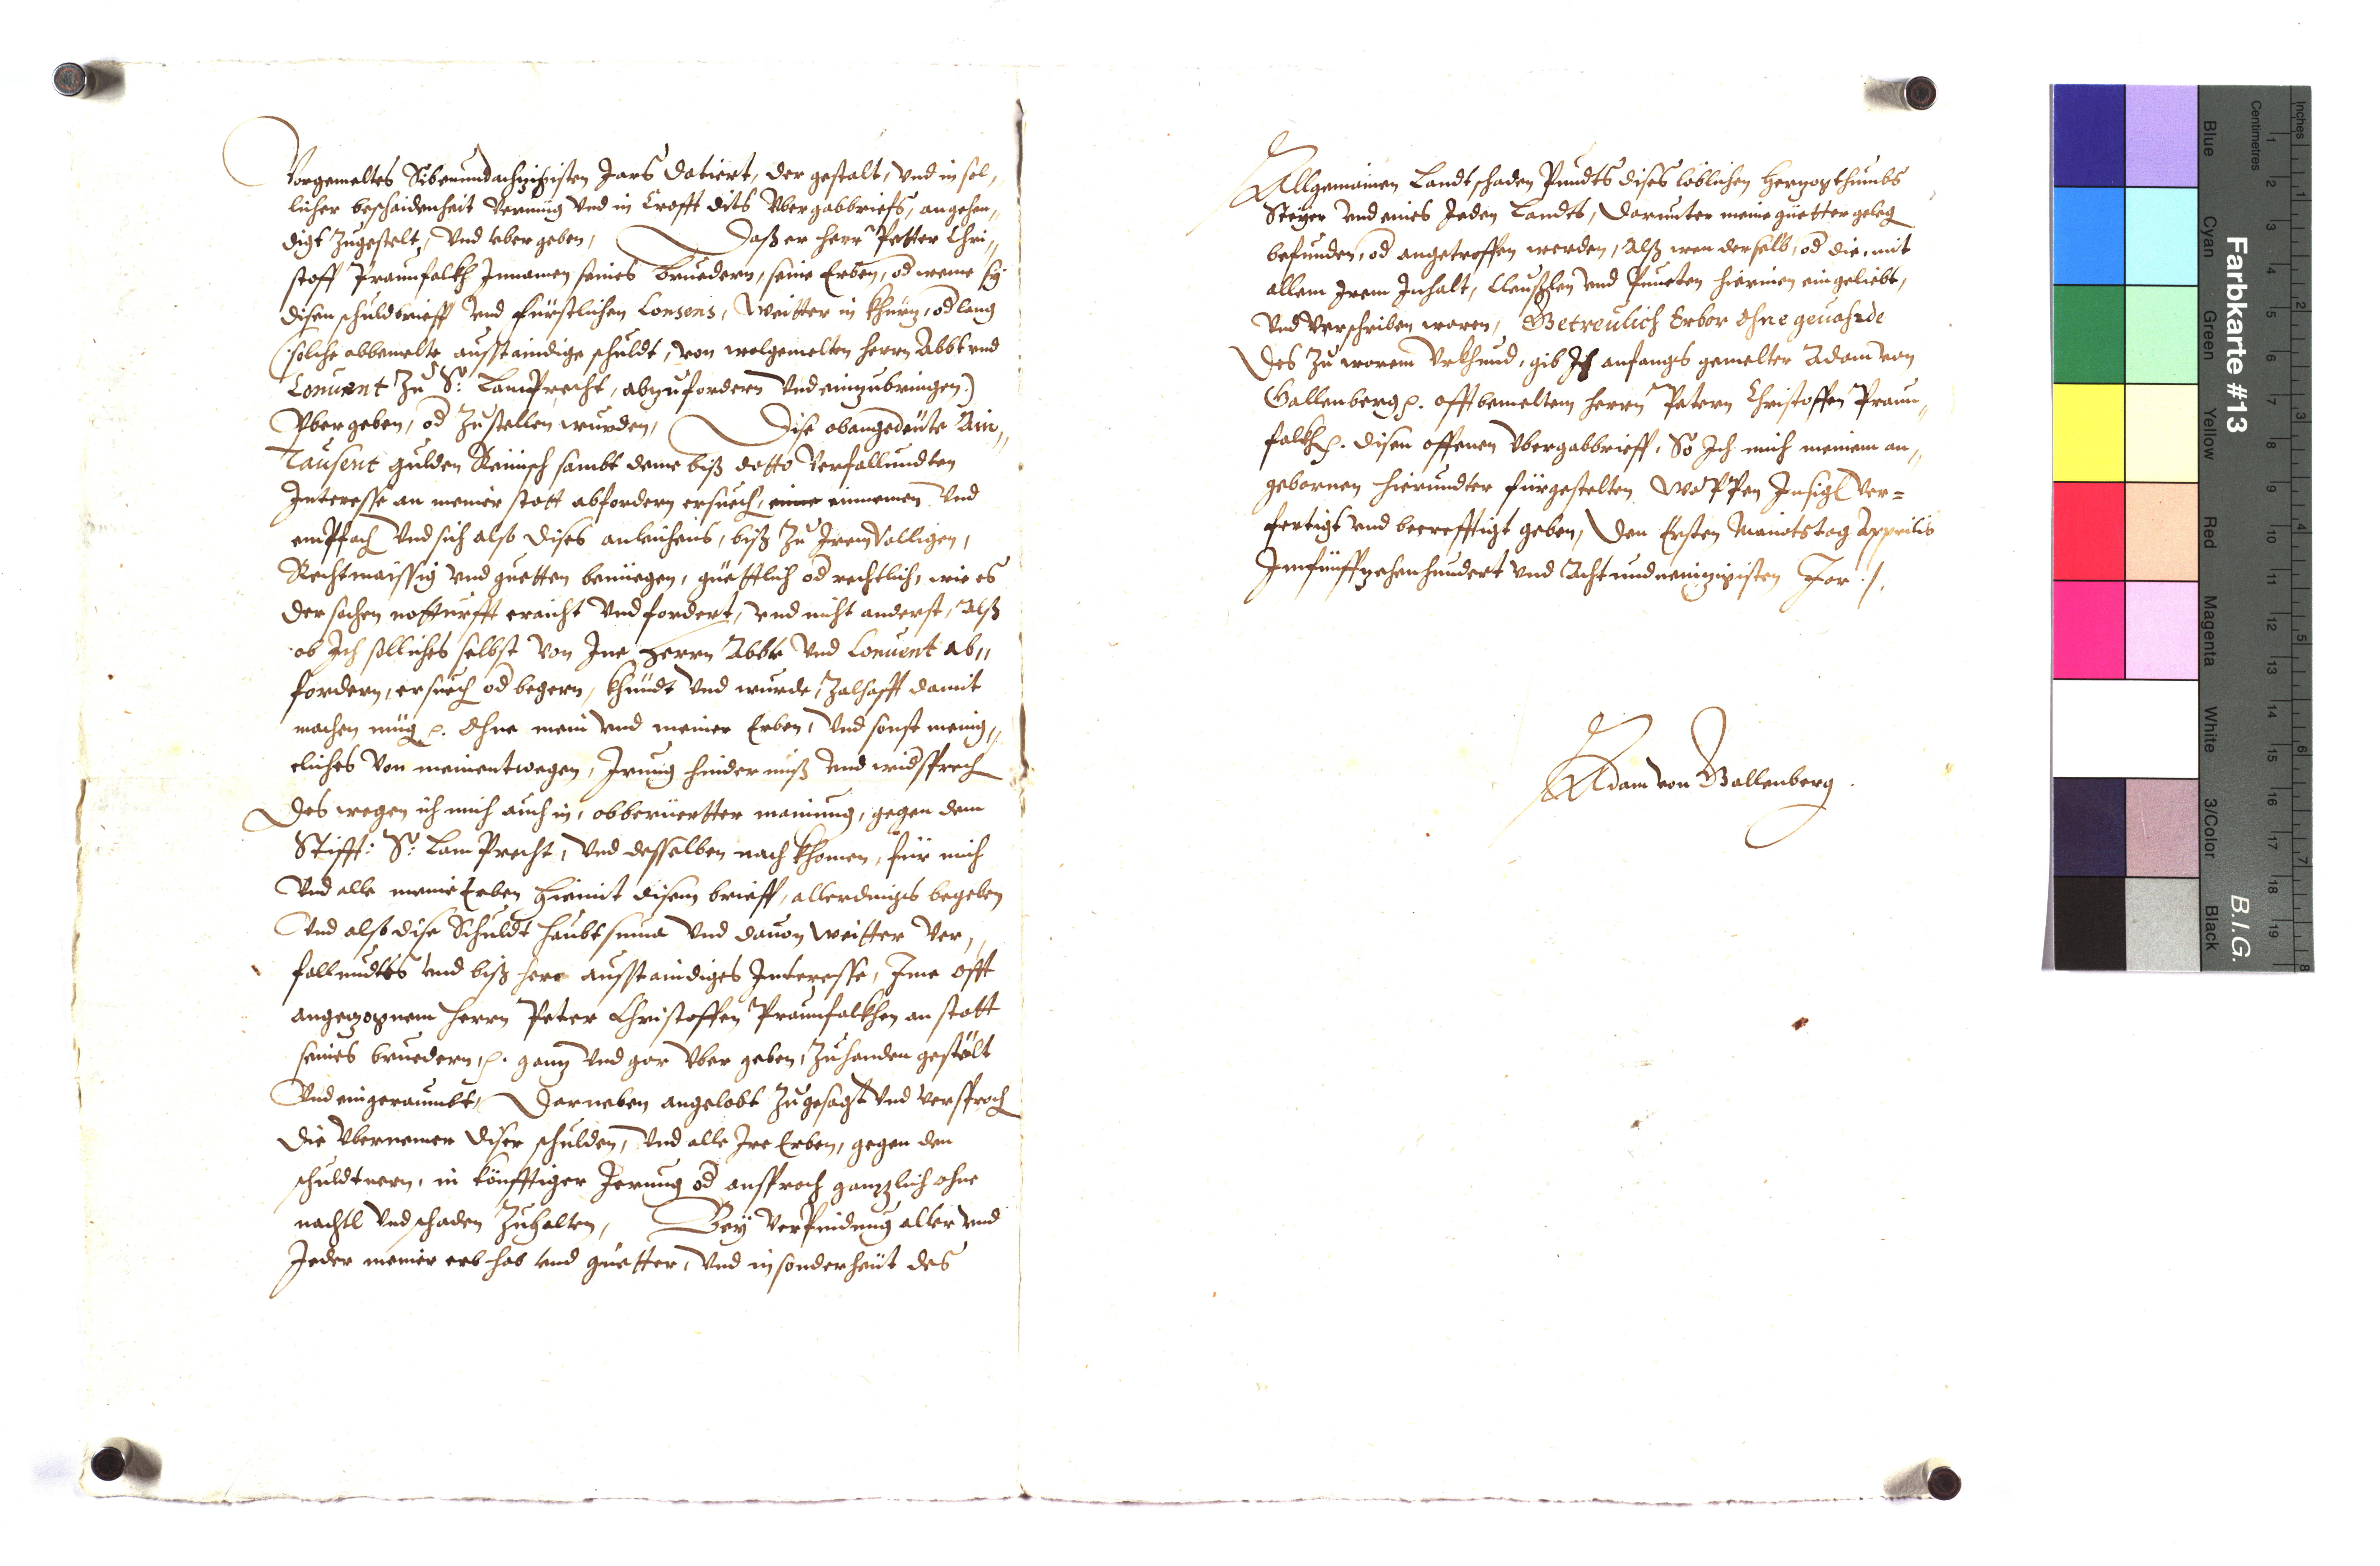 Vorgemeltes Sibenundachzigisten Jars datiert, der gestalt, vnd in sol,,
licher beschaidenheit vermüg vnd in Crafft dits Vbergabbriefs, angehen,,
digt zugestelt, vnd vbergeben, Daß er herr Petter Chri,,
stoff Praunfalkh Innamen seines bruedern, seine Erben, od weme sÿ
disen schuldbrieff vnd fürstlichen Consens, weitter in khürz, od lang
(solche abbemelte ausstaindige schuldt, von wolgemelten herrn Abbt vnd
Conuent zu S: Lamprecht, abzufordern vnd einzubringen)
Vbergeben, od zustellen wurden, Dise obangedeüte Ain,,
Tausent gulden Reinisch sambt deme biß datto verfallundten
Interesse an meiner statt abfordern ersuech, einnemen vnd
empfach vnd sich also dises anleichens, biß zu Irem völligen,
Rechtmässig vnd guetten benüegen, güettlich od rechtlich, wie es
der sachen notturfft eraicht vnd fordert, vnd nicht anderst, alß
ob Ich solliches selbst von Ine herrn Abbt vnd Conuent ab,,
fordern, ersuech od begern, khündt vnd wurde, zalhafft damit
machen müg p. Ohne mein vnd meiner Erben, vnd sonst menig,,
eliches von meinentwegen, Irrung hindernuß vnd widsprech
Des wegen ich mich auch in, obberüertter mainung, gegen dem
Stifft: S: Lamprecht, vnd desselben nachkhomen, für mich
Vnd alle meine Erben hiemit disem brieff, allerdings begeben
Vnd also dise Schuldt haubtsuma vnd dauon weitter ver,,
fallundtes vnd biß hero ausstaindiges Interesse, Ime offt
angezognem herrn Peter Christoffen Praunfalkhen an statt
seines bruedern, p. ganz vnd gar vbergeben, zuhanden gestölt
Vnd eingeraumbt, Darneben angelobt zugesagt vnd versproch
die Vbernemer diser schulden, vnd alle Ire Erben, gegen den
schuldtnern, in könfftiger Irrung od ansprach gannzlich ohne
nachtl vnd schaden zuhalten, Beÿ verpfendung aller vnd
Jeder meiner erb hab vnd güetter, vnd in sonderheit des
Allgemainen Landtschaden Pundts dises löblichen Herzogthumbs
Steÿer vnd eines Jeden Landts, darunter meine güetter geleg
befunden, od angetroffen werden, Alß wen derselb, od die, mit
allem Irem Inhalt, Clauslen vnd Puncten hierinen eingeliebt,
Vnd verschriben waren, Getreulich Erbor Ohne geuahrde
Des zu warem Vrkhund, gib Ich anfangs gemelter Adam von
Gallenberg p. offtbemeltem herrn Petern Christoffen Praun,,
falkh p. disen offenen Vbergabbrieff, So Ich mich meinem an,,
gebornen hierundter fürgestelten Wappen Insigl ver=
fertigt vnd becrefftigt geben, Den Ersten Monatstag Apprilis
Im fünffzehenhundert vnd Acht und neinzigisten Jar ./.
Adam von Gallenberg.
Farbkarte #13
B.I.G.
Inches
Centimetres
Blue
Cyan
Green
Yellow
Red
Magenta
White
3/Color
Black
1 2 3 4 5 6 7 8 9 10 11 12 13 14 15 16 17 18 19
1 2 3 4 5 6 7 8